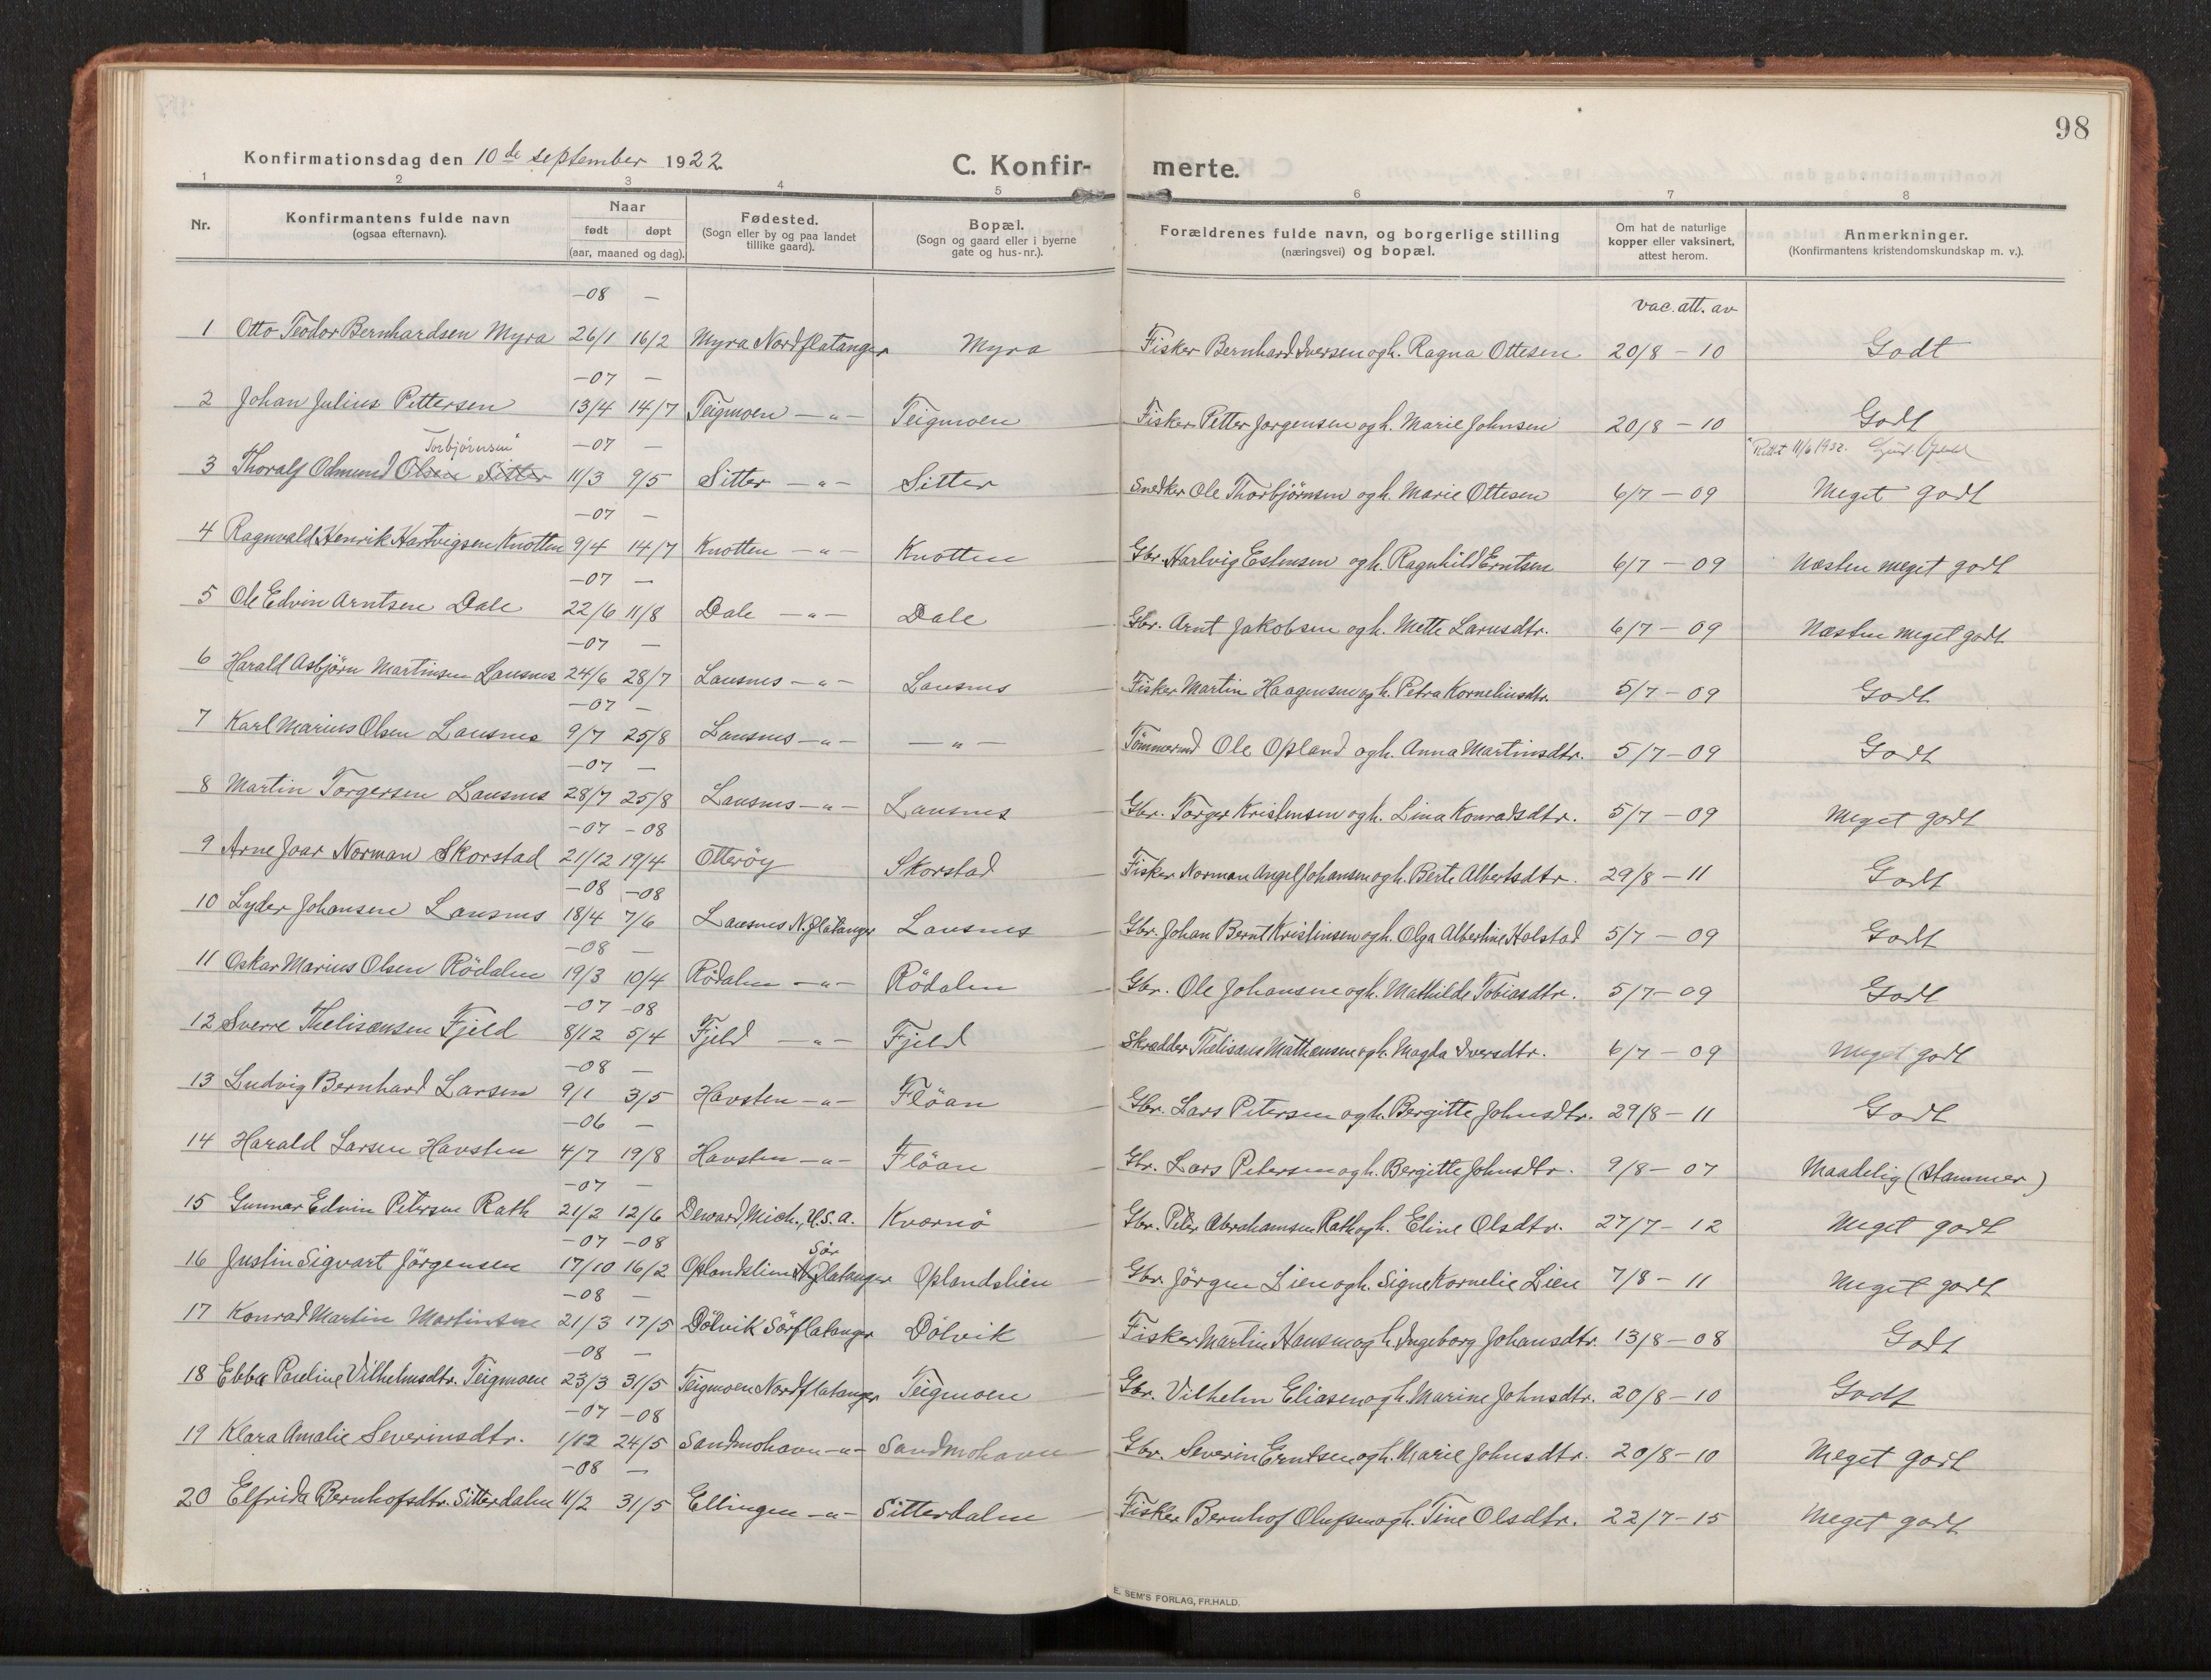 98
Konfirmationsdag den 10de september 1922.
C. Konfir- merte.
1 2 3 4 5 6 7 8
Nr.
Konfirmantens fulde navn
(ogsaa efternavn).
Naar
født døpt
(aar, maaned og dag).
Fødested.
(Sogn eller by og paa landet
tillike gaard).
Bopæl.
(Sogn og gaard eller i byerne
gate og hus-nr.).
Forældrenes fulde navn, og borgerlige stilling
(næringsvei) og bopæl.
Om hat de naturlige
kopper eller vaksinert,
attest herom.
Anmerkninger.
(Konfirmantens kristendomskundskap m. v.).
-08 — vac. att. av
1 Otto Teodor Bernhardsen Myra 26/1 16/2 Myra Nordflatanger Myra — Fisker Bernhard Iversen og h. Ragna Ottesen 20/8 - 10 Godt
-07 —
2 Johan Julius Pettersen 13/4 14/7 Teigmoen -"- Teigmoen — Fisker Petter Jørgensen og h. Marie Johnsen 20/8 - 10 Godt
Torbjørnsen* -07 — *Rettet 11/6 1932.
3 Thoralf Odmund Olsen Sitter 11/3 9/5 Sitter -"- Sitter — Snedker Ole Thorbjørnsen og h. Marie Ottesen 6/7 - 09 Meget godt
-07 —
4 Ragnvald Henrik Hartvigsen Knotten 9/4 14/7 Knotten -"- Knotten — Gbr. Hartvig Estensen og h. Ragnhild Erntsen 6/7 - 09 Næsten meget godt
-07 —
5 Ole Edvin Arntsen Dale 22/6 11/8 Dale -"- Dale — Gbr. Arnt Jakobsen og h. Mette Larusdtr. 6/7 - 09 Næsten meget godt
-07 —
6 Harald Asbjörn Martinsen Lausnes 24/6 28/7 Lausnes -"- Lausnes — Fisker Martin Haagensen og h. Petra Korneliusdtr. 5/7 - 09 Godt
-07 —
7 Karl Marius Olsen Lausnes 9/7 25/8 Lausnes -"- -"- — Tömmermd Ole Opland og h. Anna Martinsdtr. 5/7 - 09 Godt
-07 —
8 Martin Torgersen Lausnes 28/7 25/8 Lausnes -"- Lausnes — Gbr. Torger Kristensen og h. Lina Konradsdtr. 5/7 - 09 Meget godt
-07 -08
9 Arne Joar Norman Skorstad 21/12 19/4 Otteröy Skorstad — Fisker Norman Angel Johansen og h. Berte Albertsdtr. 29/8 - 11 Godt
-08 -08
10 Lyder Johansen Lausnes 18/4 7/6 Lausnes N. Flatanger Lausnes — Gbr. Johan Bernt Kristensen og h. Olga Albertine Holstad 5/7 - 09 Godt
-08 —
11 Oskar Marius Olsen Rödalen 19/3 10/4 Rödalen -"- Rödalen — Gbr. Ole Johansen og h. Mathilde Tobiasdtr. 5/7 - 09 Godt
-07 -08
12 Sverre Thelisensen Fjeld 8/12 5/4 Fjeld -"- Fjeld — Skrædder Thelisæus Mathæusen og h. Magda Iversdtr. 6/7 - 09 Meget godt
-08 —
13 Ludvig Bernhard Larsen 9/1 3/5 Havsten -"- Flöan — Gbr. Lars Petersen og h. Bergitte Johnsdtr. 29/8 - 11 Godt
-06 —
14 Harald Larsen Havsten 4/7 19/8 Havsten -"- Flöan — Gbr. Lars Petersen og h. Bergitte Johnsdtr. 9/8 - 07 Maadelig (stammer)
-07 —
15 Gunnar Edvin Petersen Rath 21/2 12/6 Deward, Mich., U.S.A. Kvarnö — Gbr. Peter Abrahamsen Rath og h. Eline Olsdtr. 27/7 - 12 Meget godt
-07 -08 Sör
16 Justin Sigvart Jörgensen 17/10 16/2 Oplandslien N. Flatanger Oplandslien — Gbr. Jörgen Lien og h. Signe Kornelie Lien 7/8 - 11 Meget godt
-08 —
17 Konrad Martin Martinsen 21/3 17/5 Dölvik Sörflatanger Dölvik — Fisker Martin Hansen og h. Ingeborg Johansdtr. 13/8 - 08 Godt
-08 —
18 Ebba Pauline Vilhelmsdtr. Teigmoen 23/3 31/5 Teigmoen Nordflatanger Teigmoen — Gbr. Vilhelm Eliasen og h. Marine Johnsdtr. 20/8 - 10 Godt
-07 -08
19 Klara Amalie Severinsdtr. 1/12 24/5 Sandmohavn -"- Sandmohavn — Gbr. Severin Erntsen og h. Marie Johnsdtr. 20/8 - 10 Meget godt
-08 —
20 Elfrida Bernhofsdtr. Sitterdalen 11/2 31/5 Ellingen -"- Sitterdalen — Fisker Bernhof Olufsen og h. Tine Olsdtr. 22/7 - 15 Meget godt
E. SEM'S FORLAG, FR.HALD.